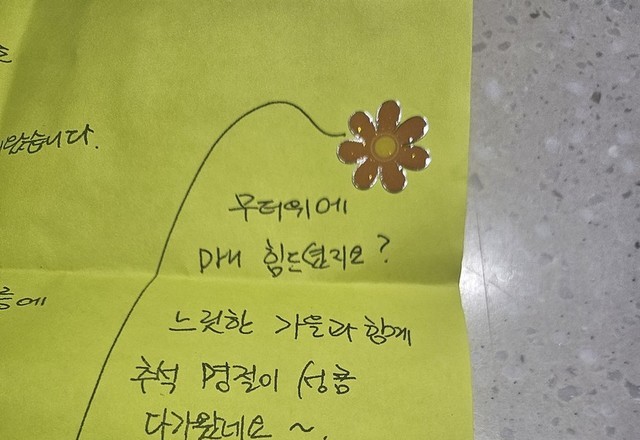 습니다.
무더위에
마니 힘드셨지요?
등에
느긋한 가을과 함께
추석 명절이 성큼
다가왔네요~.